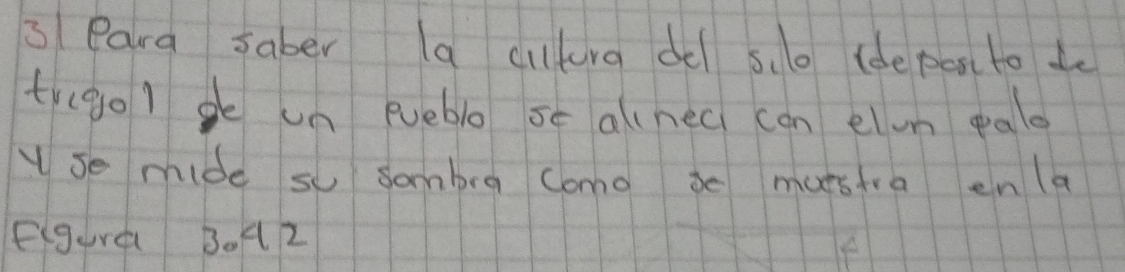 3) Para saber la altura del silo (deposito de
trigo) de un pueblo se alinea con el un palo
y se mide su sombra como se muestra en la
Figura 3.42